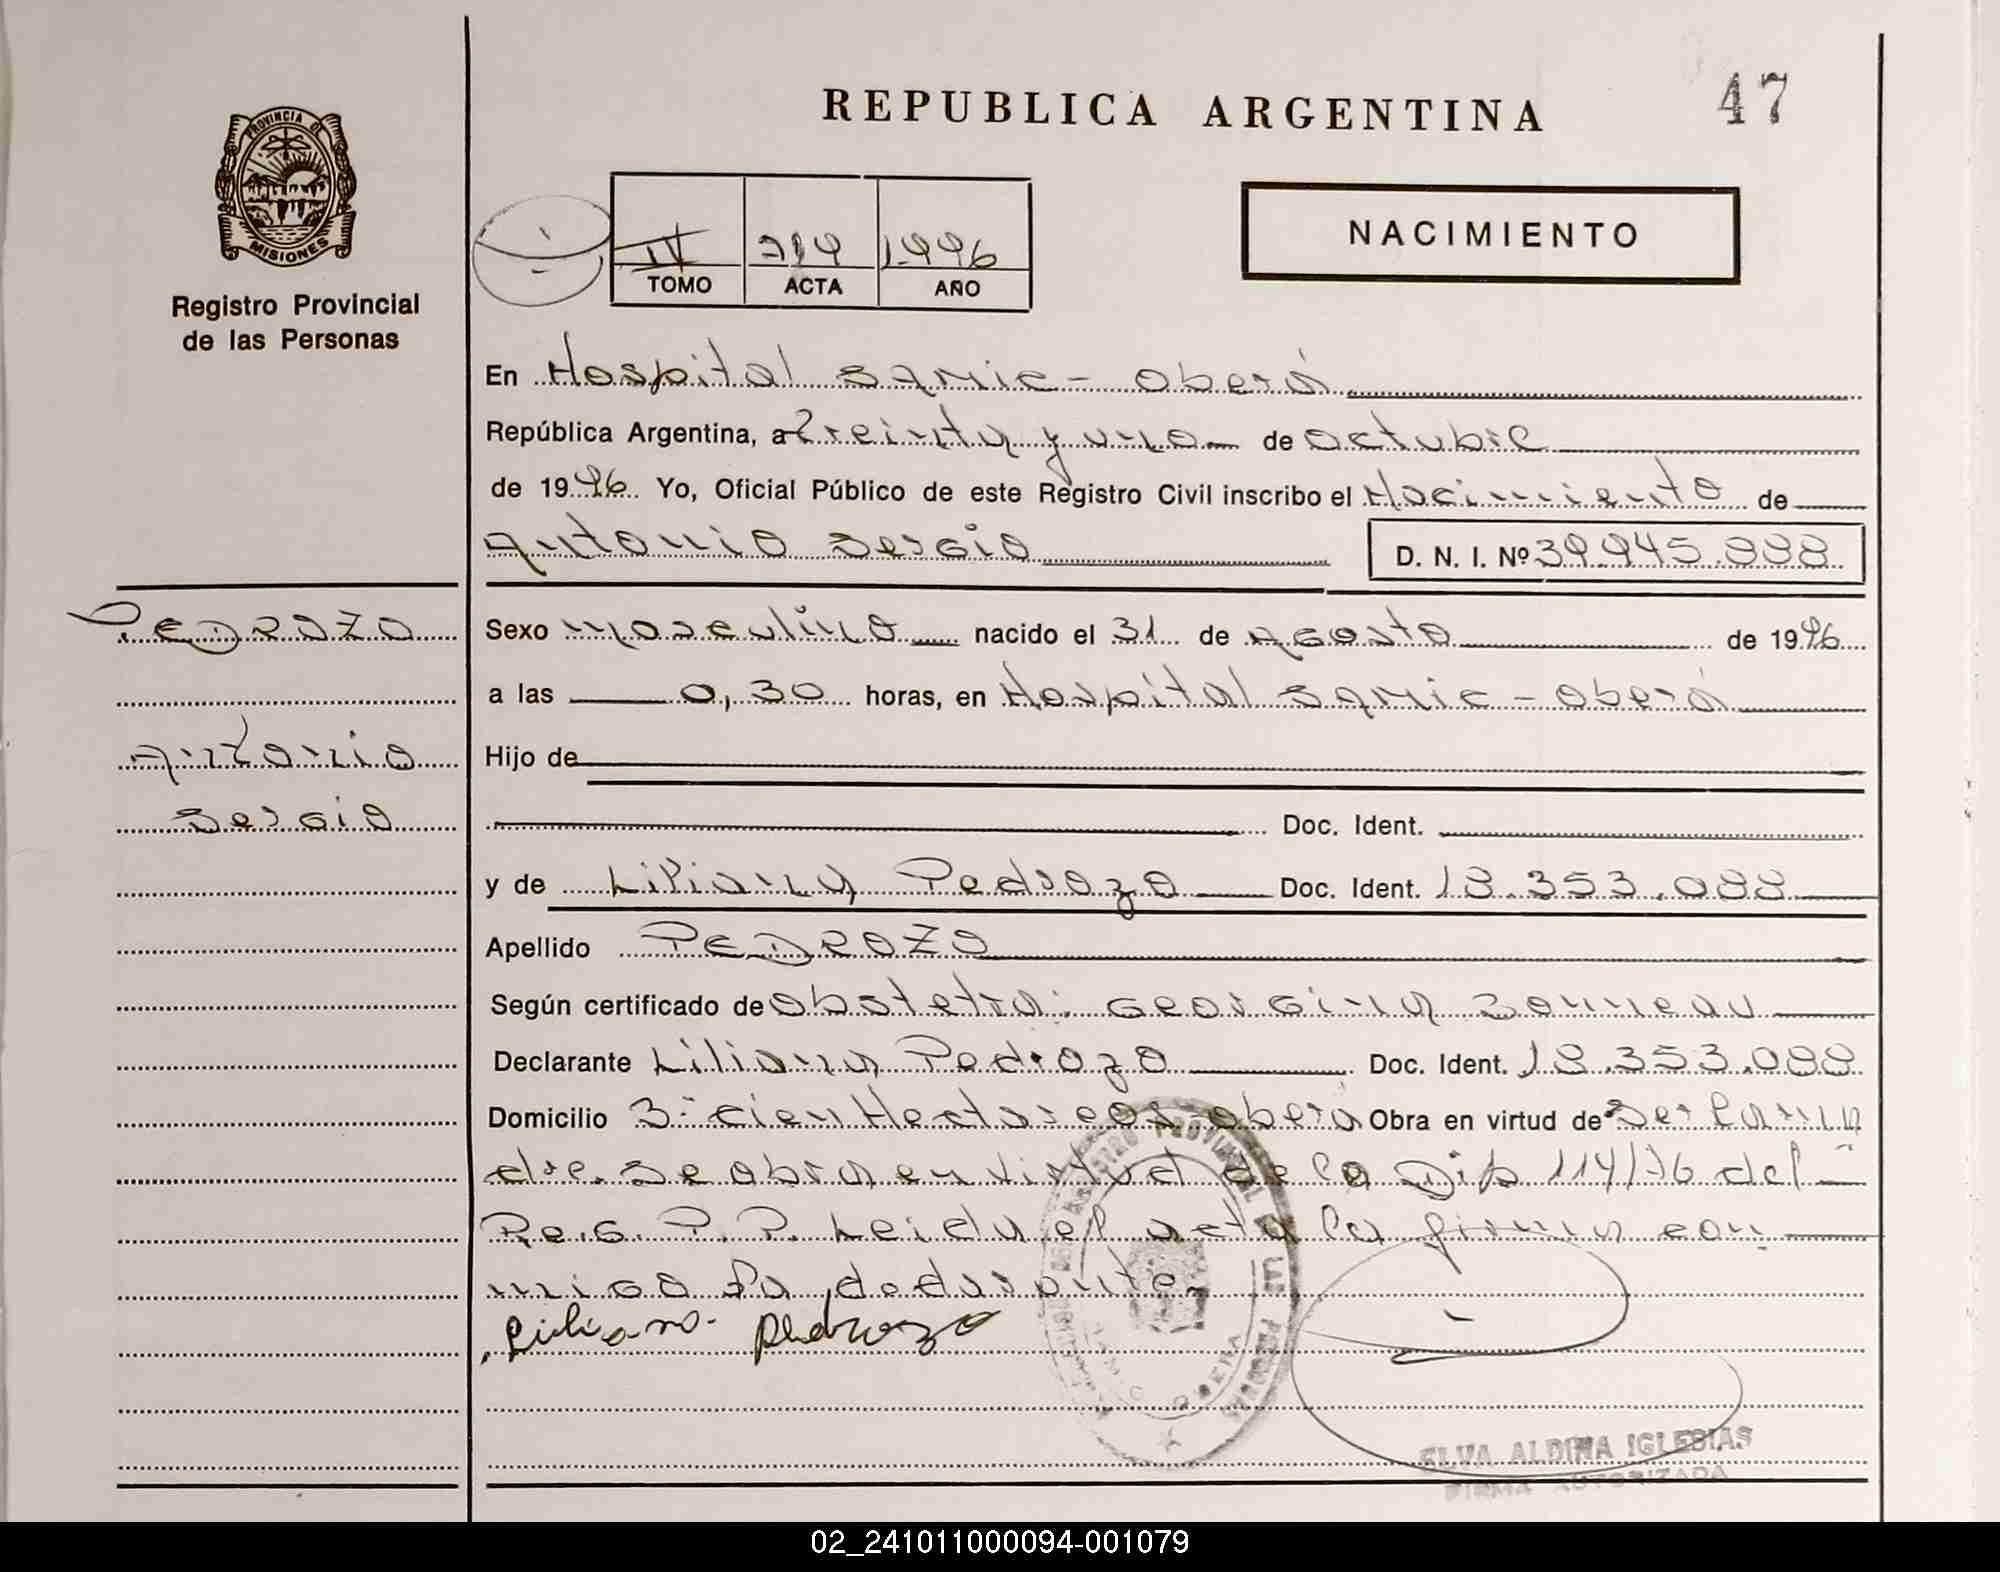 REPUBLICA ARGENTINA
47
PROVINCIA DE
MISIONES
Registro Provincial
de las Personas
IV 714 1.996
TOMO ACTA AÑO
NACIMIENTO
En Hospital Samic - Oberá
República Argentina, a Treinta y uno de octubre
de 1996 Yo, Oficial Público de este Registro Civil inscribo el Nacimiento de
Antonio Sergio D. N. I. Nº 39.945.888
PEDROZO
Antonio
Sergio
Sexo masculino nacido el 31 de Agosto de 1996
a las 0,30 horas, en Hospital Samic - Oberá
Hijo de
Doc. Ident.
y de Liliana Pedrozo Doc. Ident. 18.353.088
Apellido PEDROZO
Según certificado de obstetra: Georgina Bonneau
Declarante Liliana Pedrozo Doc. Ident. 18.353.088
Domicilio 3- cien Hectareas Oberá Obra en virtud de Ser la ma
dre. Se obra en virtud de la Disp 114/76 del
Reg. P. P. Leida el acta la firma con
migo la declarante
Liliana Pedrozo
REGISTRO PROVINCIAL DE LAS PERSONAS
ELVA ALDINA IGLESIAS
FIRMA AUTORIZADA
02_241011000094-001079